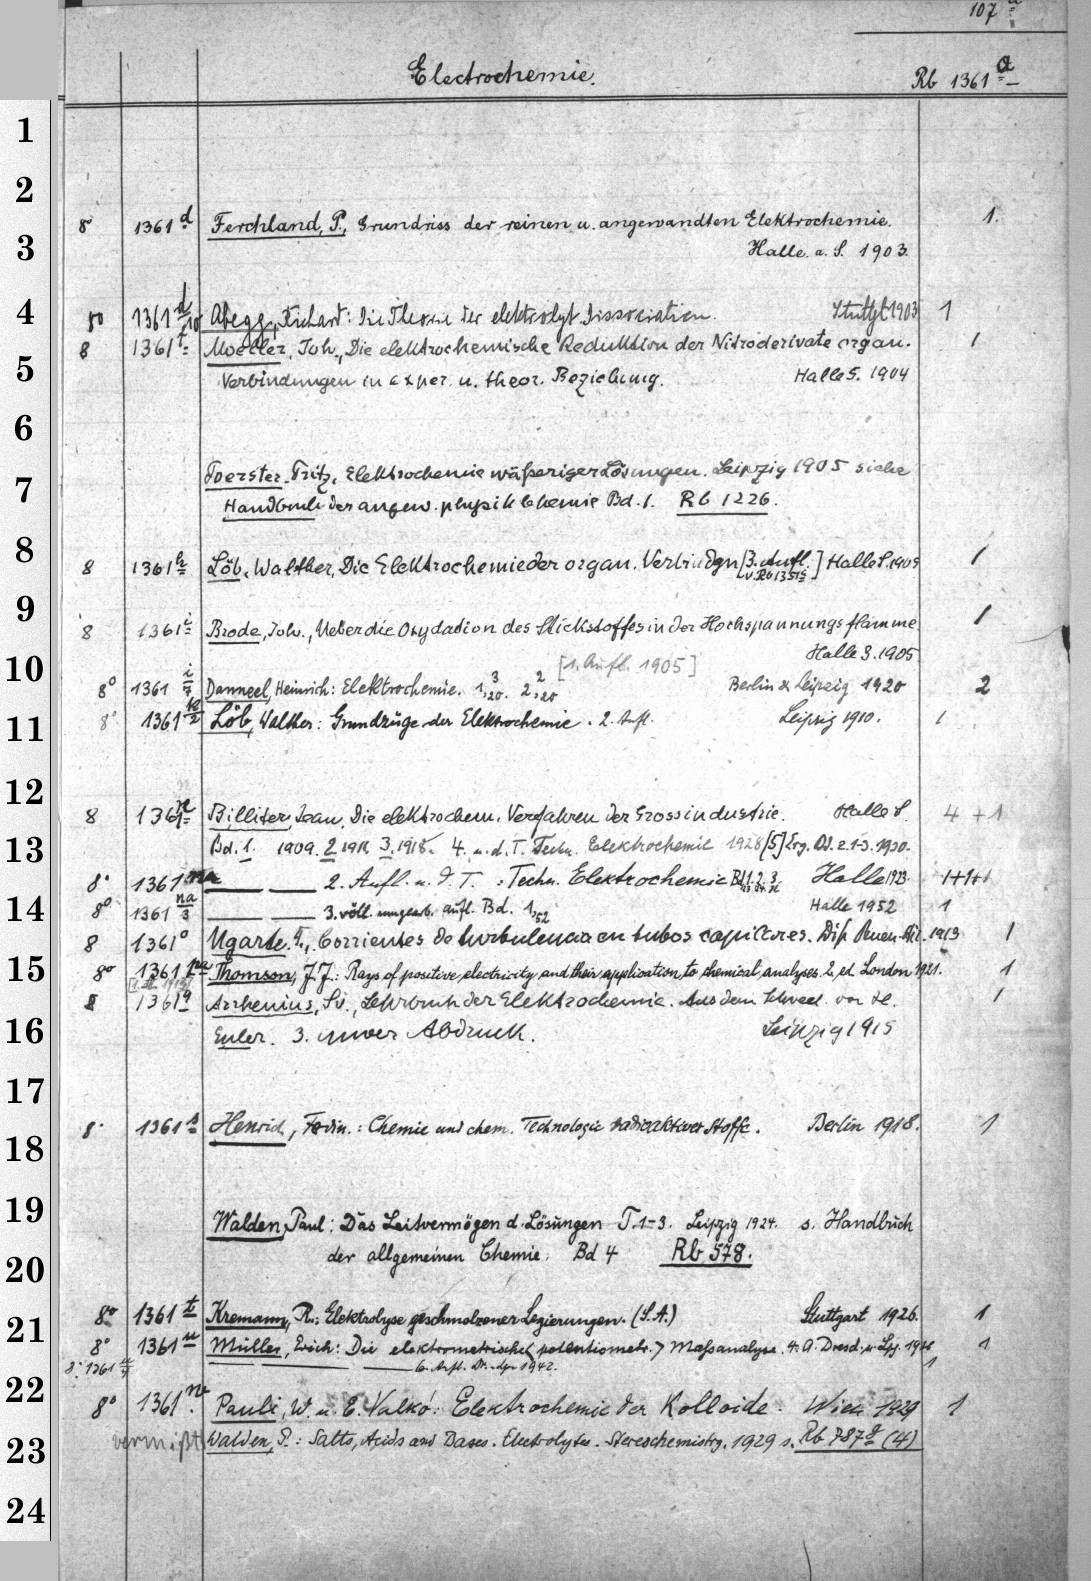 107 a
Electrochemie.
Rb 1361 a
1
2
3
4
5
6
7
8
9
10
11
12
13
14
15
16
17
18
19
20
21
22
23
24
8° 1361 d Ferchland, P., Grundriss der reinen u. angewandten Elektrochemie. 1.
Halle a. S. 1903.
8° 1361 d/10 Abegg, Richard: Die Theorie der elektrolyt. Dissociation. Stuttgt 1903 1
8 1361 f Moeller, Joh., Die elektrochemische Reduktion der Nitroderivate organ. 1
Verbindungen in exper. u. theor. Beziehung. Halle S. 1904
Foerster, Fritz, Elektrochemie wäßeriger Lösungen. Leipzig 1905 siehe
Handbuch der angew. physik Chemie Bd. 1. Rb 1226.
8 1361 h Löb, Walther, Die Elektrochemie der organ. Verbindgn [3. Aufl. ] Halle S. 1905 1
8 1361 i Brode, Joh., Ueber die Oxydation des Stickstoffes in der Hochspannungsflamme 1
Halle S. 1905
[1. Aufl. 1905]
8° 1361 i/7 Danneel, Heinrich: Elektrochemie. 1,3 20. 2,2 20 Berlin & Leipzig 1920 2
8° 1361 k/2 Löb, Walther: Grundzüge der Elektrochemie. 2. Aufl. Leipzig 1910. 1
8 1361 n Billiter, Jean, Die elektrochem. Verfahren der Grossindustrie. Halle S. 4 + 1
Bd. 1. 1909. 2 1911 3. 1918. 4. u. d. T. Techn. Elektrochemie 1928 [5] Erg. Bd. z. 1-3. 1930.
8° 1361 na — — 2. Aufl. u. d. T. : Techn. Elektrochemie Bd 1. 2. 3. Halle 1923 1+1+1
8° 1361 na/3 — — 3. völl. umgearb. Aufl. Bd. 1,52 Halle 1952 1
8 1361 o Ugarte, T., Corrientes de turbulencia en tubos capillares. Diss. 1913 1
8° 1361 pa Thomson, J. J.: Rays of positive electricity and their application to chemical analyses. 2. ed. London 1921. 1
8 1361 q Arrhenius, Sv., Lehrbuch der Elektrochemie. Aus dem Schwed. von H. 1
Euler. 3. unver Abdruck. Leipzig 1915
8° 1361 s Henrich, Ferdin.: Chemie und chem. Technologie radioaktiver Stoffe. Berlin 1918. 1
Walden, Paul: Das Leitvermögen d. Lösungen T. 1-3. Leipzig 1924. s. Handbuch
der allgemeinen Chemie. Bd 4 Rb 578.
8° 1361 t Kremann, R.: Elektrolyse geschmolzener Legierungen. (S.A.) Stuttgart 1926. 1
8° 1361 u Müller, Erich: Die elektrometrische (potentiometr.) Maßanalyse. 4. A. Dresd. u. Lpz. 1926 1
8° 1361 — — 6. Aufl. Dr. Lpz 1942. 1
8° 1361 w Pauli, W. u. E. Valkó: Elektrochemie der Kolloide. Wien 1929 1
vermißt Walden, P.: Salts, Acids and Bases. Electrolytes. Stereochemistry. 1929 s. Rb 787 g (4)